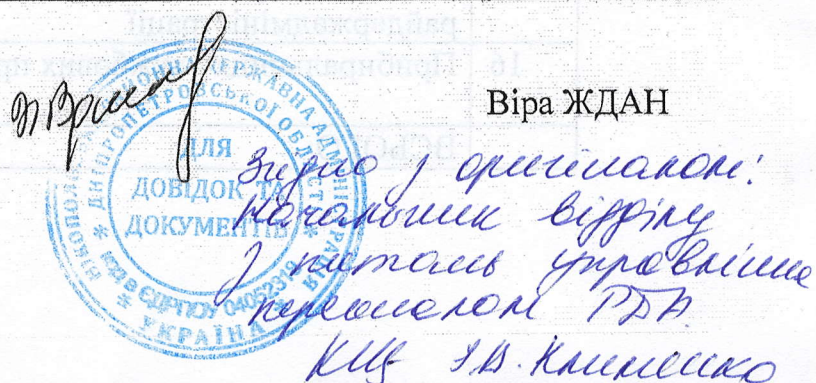 Віра ЖДАН
НІКОПОЛЬСЬКА РАЙОННА ДЕРЖАВНА АДМІНІСТРАЦІЯ
ДНІПРОПЕТРОВСЬКОЇ ОБЛАСТІ
ДЛЯ
ДОВІДОК ТА
ДОКУМЕНТІВ
КОД В ЄДРПОУ 04052319
* УКРАЇНА *
Згідно з оригіналом:
Начальник відділу
з питань управління
персоналом РДА
Клименко